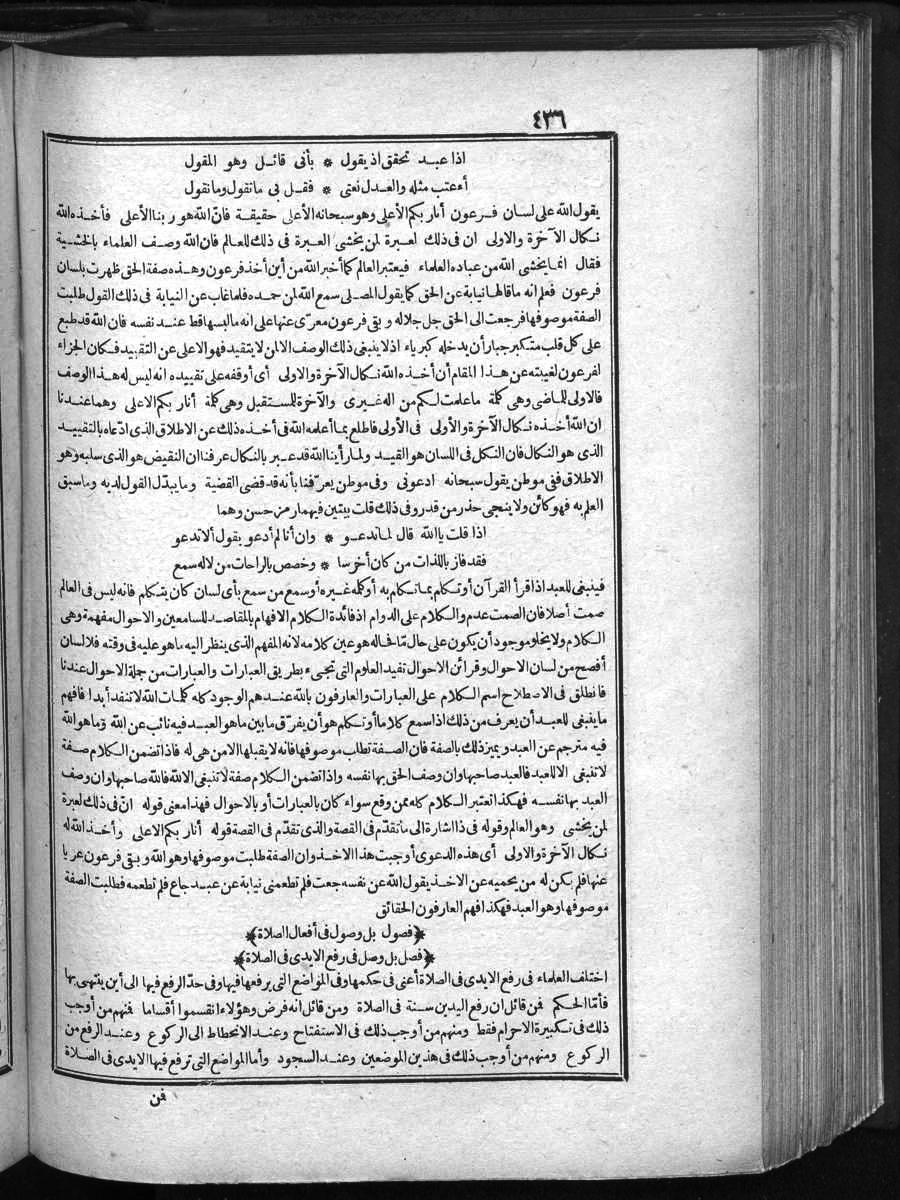 ٤٣٦
اذا عبد تحقق اذ يقول * بأنى قائل وهو المقول
أعتب مثله والعدل نعتى * فقل بى ما نقول وما نقول
يقول الله على لسان فرعون أنا ربكم الأعلى وهو سبحانه الأعلى حقيقة فان الله هو ربنا الأعلى فأخذه الله
نكال الآخرة والاولى ان فى ذلك لعبرة لمن يخشى العبرة فى ذلك للعالم فان الله وصف العلماء بالخشية
فقال انما يخشى الله من عباده العلماء فيعتبر العالم كما أخبر الله من أين أخذ فرعون وهذه صفة الحق ظهرت بلسان
فرعون فعلم انه ما قالها نيابة عن الحق كما يقول المصلى سمع الله لمن حمده فلما غاب عن النيابة فى ذلك القول طلبت
الصفة موصوفها فرجعت الى الحق جل جلاله وبقى فرعون معرى عنها على انه ما لبسها قط عند نفسه فان الله قد طبع
على كل قلب متكبر جبار أن يدخله كبرياء اذ لا ينبغى ذلك الوصف الا لمن لا يتقيد فهو الاعلى عن التقييد فكان الجزاء
لفرعون لغيبته عن هذا المقام أن أخذه الله نكال الآخرة والاولى أى أوقفه على تقييده انه ليس له هذا الوصف
فالاولى للماضى وهى كلمة ما علمت لكم من اله غيرى والآخرة للمستقبل وهى كلمة أنا ربكم الاعلى وهما عندنا
ان الله أخذه نكال الآخرة والأولى فى الأولى فاطلع بما أعلمه الله فى أخذه ذلك عن الاطلاق الذى ادّعاه بالتقييد
الذى هو النكال فان النكل فى اللسان هو القيد ولما رأينا الله قد عبر بالنكال عرفنا ان النقيض هو الذى سلبه وهو
الاطلاق ففى موطن يقول سبحانه ادعونى وفى موطن يعرّفنا بأنه قد قضى القضية وما يبدّل القول لديه وما سبق
العلم به فهو كائن ولا ينجى حذر من قدر وفى ذلك قلت بيتين فيهما رمز حسن وهما
اذا قلت يا الله قال لما تدعو * وان أنا لم أدعو يقول ألا تدعو
فقد فاز باللذات من كان أخرسا * وخصص بالراحات من لا له سمع
فينبغى للعبد اذا قرأ القرآن أو تكلم بما تكلم به أو كلمه غيره أو سمع من سمع بأى لسان كان يتكلم فانه ليس فى العالم
صمت أصلا فان الصمت عدم والكلام على الدوام اذ فائدة الكلام الافهام بالمقاصد للسامعين والاحوال مفهمة وهى
الكلام ولا يخلو موجود أن يكون على حال مّا فحاله هو عين كلامه لانه المفهم الذى ينظر اليه ما هو عليه فى وقته فلا لسان
أفصح من لسان الاحوال وقرائن الاحوال تفيد العلوم التى تجىء بطريق العبارات والعبارات من جملة الاحوال عندنا
فانطلق فى الاصطلاح اسم الكلام على العبارات والعارفون بالله عندهم الوجود كله كلمات الله لا تنفد أبدا فافهم
ما ينبغى للعبد أن يعرف من ذلك اذا سمع كلاما أو تكلم هو أن يفرّق ما بين ما هو العبد فيه نائب عن الله وما هو الله
فيه مترجم عن العبد ويميز ذلك بالصفة فان الصفة تطلب موصوفها فانه لا يقبلها الا من هى له فاذا تضمن الكلام صفة
لا تنبغى الا للعبد فالعبد صاحبها وان وصف الحق بها نفسه واذا تضمن الكلام صفة لا تنبغى الا لله فالله صاحبها وان وصف
العبد بها نفسه فهكذا تعتبر الكلام كله ممن وقع سواء كان بالعبارات أو بالاحوال فهذا معنى قوله انّ فى ذلك لعبرة
لمن يخشى وهو العالم وقوله فى ذا اشارة الى ما تقدّم فى القصة والذى تقدّم فى القصة قوله أنا ربكم الاعلى وأخذ الله له
نكال الآخرة والاولى أى هذه الدعوى أوجبت هذا الاخذ وان الصفة طلبت موصوفها وهو الله وبقى فرعون عريا
عنها فلم يكن له من يحميه عن الاخذ يقول الله عن نفسه جعت فلم تطعمنى نيابة عن عبد جاع فلم تطعمه فطلبت الصفة
موصوفها وهو العبد فهكذا فهم العارفون الحقائق
﴿فصول بل وصول فى أفعال الصلاة﴾
﴿فصل بل وصل فى رفع الايدى فى الصلاة﴾
اختلف العلماء فى رفع الايدى فى الصلاة أعنى فى حكمها وفى المواضع التى يرفعها فيها وفى حدّ الرفع فيها الى أين ينتهى بها
فأمّا الحكم فمن قائل ان رفع اليدين سنة فى الصلاة ومن قائل انه فرض وهؤلاء انقسموا أقساما فمنهم من أوجب
ذلك فى تكبيرة الاحرام فقط ومنهم من أوجب ذلك فى الاستفتاح وعند الانحطاط الى الركوع وعند الرفع من
الركوع ومنهم من أوجب ذلك فى هذين الموضعين وعند السجود وأما المواضع التى ترفع فيها الايدى فى الصلاة
فمن